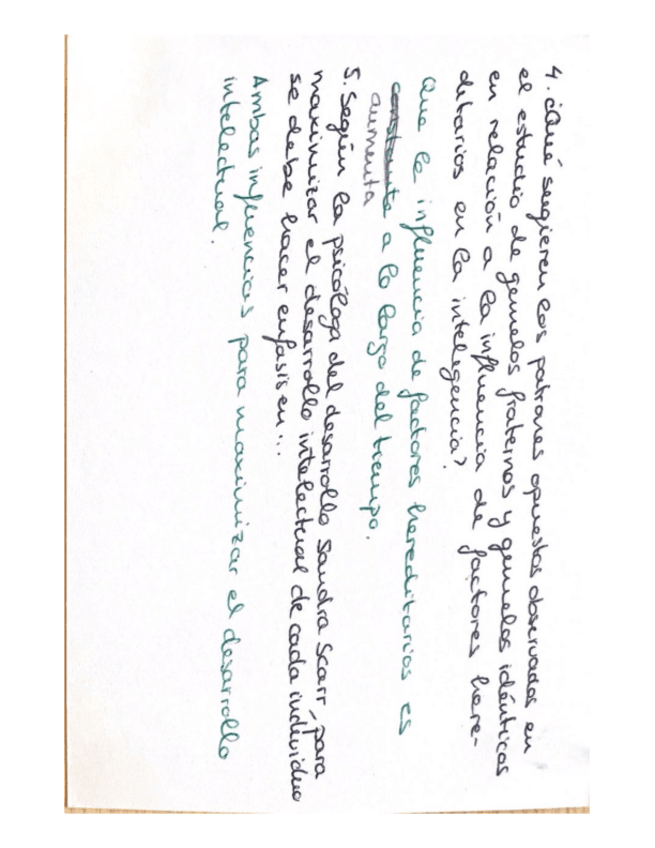 4. ¿Qué sugieren los patrones opuestos observados en
el estudio de gemelos fraternos y gemelos idénticos
en relación a la influencia de factores here-
ditarios en la intelegencia?
Que la influencia de factores hereditarios es
constante a lo largo del tiempo.
aumenta
5. Según la psicóloga del desarrollo Sandra Scarr, para
maximizar el desarrollo intelectual de cada individuo
se debe hacer enfasis en...
Ambas influencias para maximizar el desarrollo
intelectual.